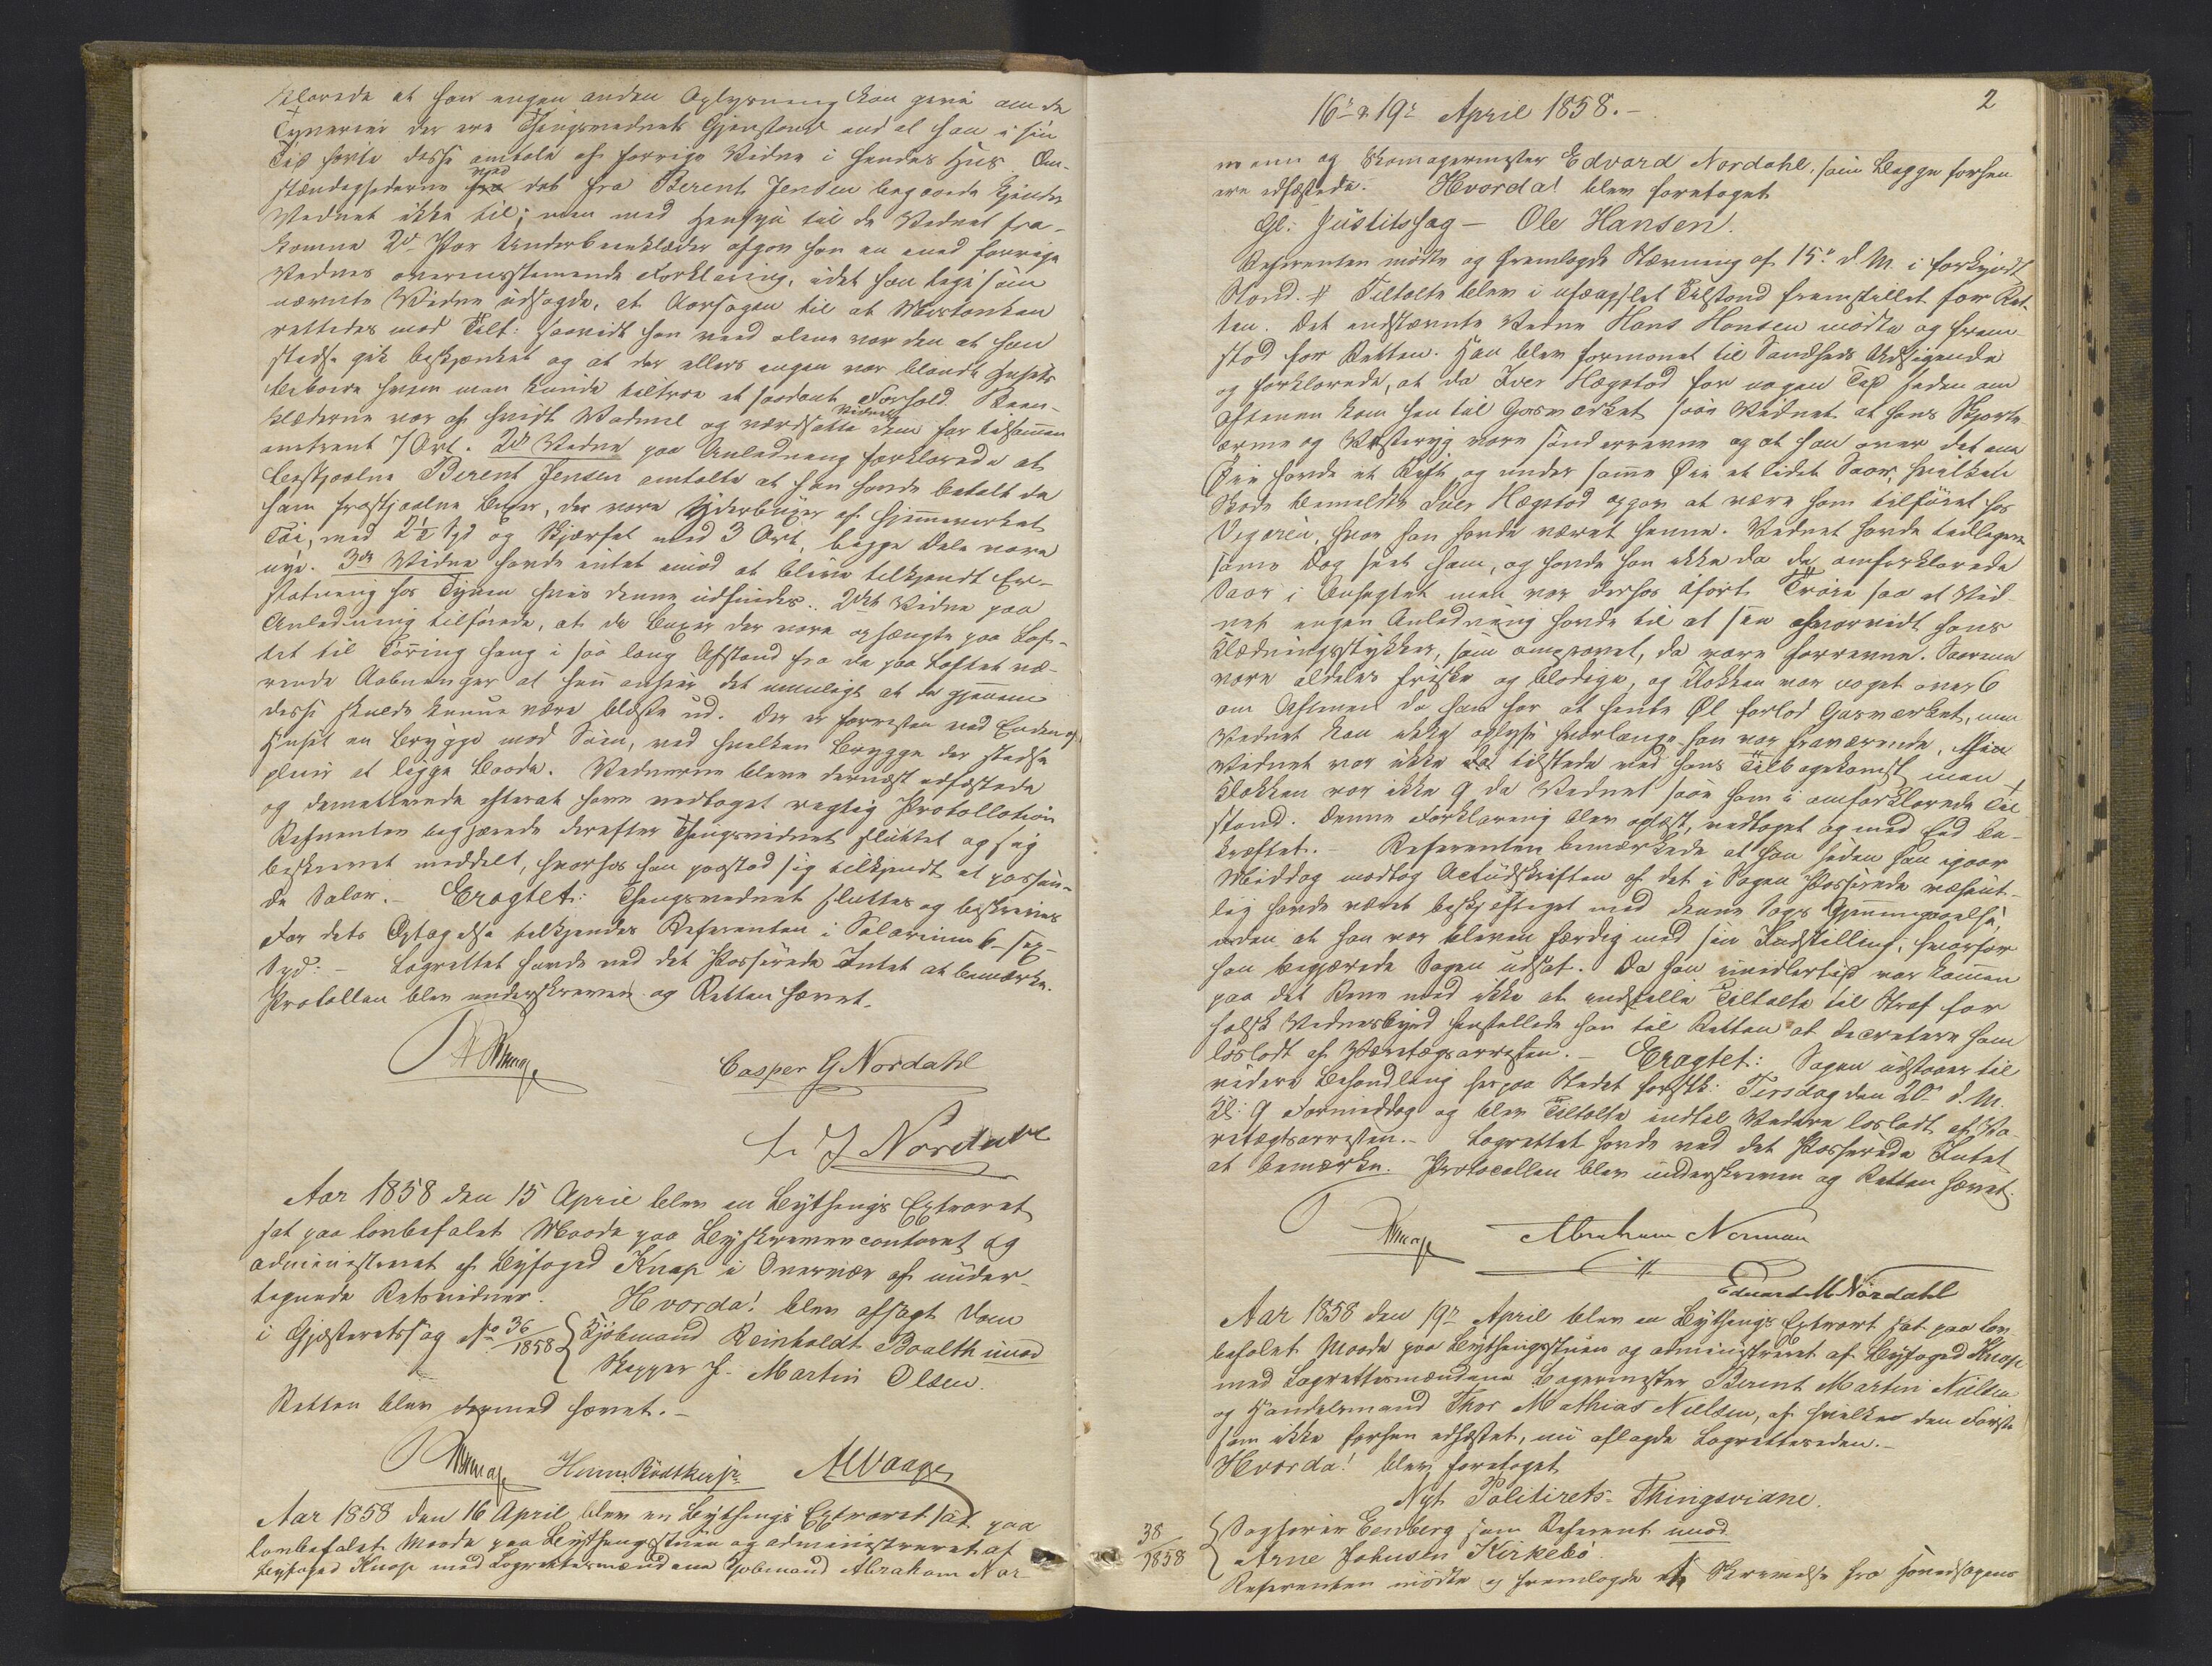 klarede at han ingen anden Oplysning kan give om de
Tyverier der ere Thingsvidnets Gjenstand end at han i sin
Tid hørte disse omtale af forrige Vidne i hendes Huus. Om-
stændighederne ved det fra Berent Jensen begaaede kjender
Vidnet ikke til; men med Hensyn til de Vidnet fra-
komne 2de Par Underbeenklæder afgav han en med forrige
Vidnes overensstemmende Forklaring, idet han ligesom
nævnte Vidne udsagde, at Aarsagen til at Mistanken
rettedes mod Tilt: saavidt han veed alene var den at han
stedse gik beskjænket og at der ellers ingen var blandt Husets
Beboere hvem man kunde tiltroe et saadant Forhold. Been-
klæderne var af hvidt Vadmel og værdsatte Vidnet dem for tilsammen
omtrent 7 Ort. 2det Vidne paa Anledning forklarede at
bestjaalne Berent Jensen omtalte at han havde betalt de
ham frastjaalne Buxer, der vare Yderbuxer af hjemmevirket
Tøi, med 2½ Spd og Skjørtet med 3 Ort, begge Dele vare
nye. 3die Vidne havde intet imod at blive tilkjendt Er-
statning hos Tyven hvis denne udfindes. 2det Vidne paa
Anledning tilføiede, at de Buxer der vare ophængte paa Lof-
tet til Tørring hang i saa lang Afstand fra de paa Loftet væ-
rende Aabninger at han anseer det umuligt at de gjennem
disse skulde kunne være blæste ud. Der er forresten ved Enden af
Huset en Brygge mod Søen, ved hvilken Brygge der stedse
pleier at ligge Baade. Vidnerne bleve dernæst edfæstede
og demitterede efterat have vedtaget rigtig Protokollation
Referenten begjærede derefter Thingsvidnet sluttet og sig
beskrevet meddelt, hvorhos han paastod sig tilkjendt et passen-
de Salar. – Eragtet: Thingsvidnet sluttes og beskrives
For dets Optagelse tilkjendes Referenten i Salarium 6 – sex –
Spd: – Lagrettet havde ved det Passerede Intet at bemærke.
Protokollen blev underskreven og Retten hævet.
Knap
Casper G Nordahl
J Nordahl
Aar 1858 den 15 April blev en Bythings Extraret
sat paa lovbefalet Maade paa Byskrivercontoret og
administreret af Byfoged Knap i Overvær af under-
tegnede Retsvidner. Hvorda! blev afsagt Dom
i Gjæsteretssag No 36/1858 { Kjøbmand Reinholdt Baalth imod
Skipper J. Martin Olsen.
Retten blev dermed hævet. –
Knap Herm. Bødtker jr. A Waage
Aar 1858 den 16 April blev en Bythings Extraret sat paa
lovbefalet Maade paa Bythingsstuen og administreret af
Byfoged Knap med Lagrettesmændene Kjøbmand Abraham Nor-
2
16de & 19de April 1858. –
mann og Skomagermester Edvard Nordahl, som begge forhen
ere edfæstede. Hvorda! blev foretaget
Gl: Justitssag – Ole Hansen.
Referenten mødte og fremlagde Stævning af 15de d. M. i forkyndt
Stand. # Tiltalte blev i ufængslet Tilstand fremstillet for Ret-
ten. Det indstævnte Vidne Hans Hansen mødte og frem-
stod for Retten. Han blev formanet til Sandheds Udsigende
og forklarede, at da Iver Hægstad for nogen Tid siden om
Aftenen kom hen til Gasværket saae Vidnet at hans Skjorte-
ærme og Vesteryg vare sønderrevne og at han over det ene
Øie havde et Rift og under samme Øie et lidet Saar, hvilken
Skade bemeldte Iver Hægstad opgav at være ham tilføiet hos
Vegaren, hvor han havde været henne. Vidnet havde tidligere
samme Dag seet ham, og havde han ikke da de omforklarede
Saar i Ansigtet men var derhos iført Trøie saa at Vid-
net ingen Anledning havde til at see hvorvidt hans
Klædningsstykker, som omprovet, da vare forrevne. Saarene
vare aldeles friske og blodige, og Klokken var noget over 6
om Aftenen da han for at hente Øl forlod Gasværket, men
Vidnet kan ikke oplyse hvorlænge han var fraværende, thi
Vidnet var ikke tilstede ved hans Tilbagekomst, men
Klokken var ikke 9 da Vidnet saae ham i omforklarede Til-
stand. Denne Forklaring blev oplæst, vedtaget og med Eed be-
kræftet. – Referenten bemærkede at han siden han igaar
Middag modtog Actudskriften af det i Sagen Passerede væsent-
lig havde været beskjæftiget med denne Sags Gjennemgaaelse,
uden at han var bleven færdig med sin Indstilling, hvorfor
han begjærede Sagen udsat. Da han imidlertid var kommen
paa det Rene med ikke at indstille Tiltalte til Straf for
falsk Vidnesbyrd henstillede han til Retten at decretere ham
løsladt af Varetægtsarresten. – Eragtet: Sagen udstaaer til
videre Behandling her paa Stedet førstk: Tirsdag den 20de d. M.
Kl: 9 Formiddag og blev Tiltalte indtil Videre løsladt af Va-
retægtsarresten. – Lagrettet havde ved det Passerede Intet
at bemærke. Protocollen blev underskreven og Retten hævet.
Knap Abraham Norman
Edvard M Nordahl
Aar 1858 den 19de April blev en Bythings Extraret sat paa lov-
befalet Maade paa Bythingsstuen og administreret af Byfoged Knap
med Lagrettesmændene Bagermester Berent Martin Nielsen
og Handelsmand Thor Mathias Nielsen, af hvilke den Første
som ikke forhen edfæstet, nu aflagde Lagretteseden. –
Hvorda! blev foretaget
Nyt Politirets-Thingsvidne.
38/1858 { Sagfører Eenberg som Referent imod
Arne Johnsen Kirkebø.
Referenten mødte og fremlagde Skrivelse fra Hovedsagens